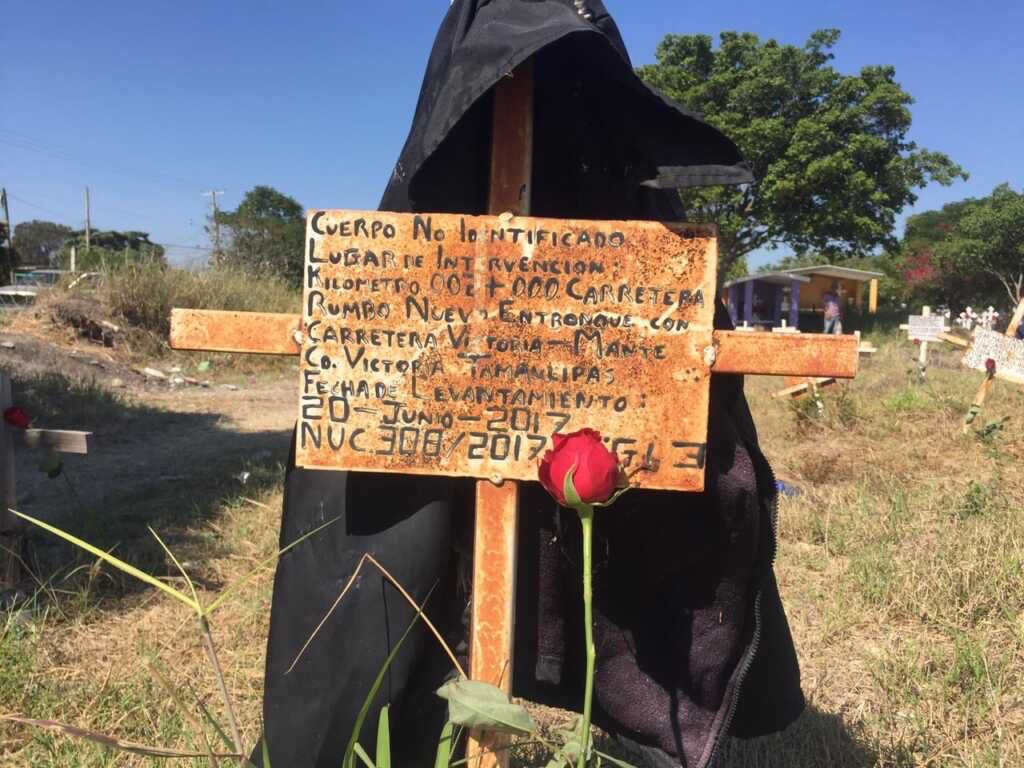 CUERPO NO IDENTIFICADO
LUGAR DE INTERVENCION:
KILOMETRO 002+000 CARRETERA
RUMBO NUEVO ENTRONQUE CON
CARRETERA VICTORIA-MANTE
CD. VICTORIA TAMAULIPAS
FECHA DE LEVANTAMIENTO:
20-JUNIO-2017
NUC 308/2017